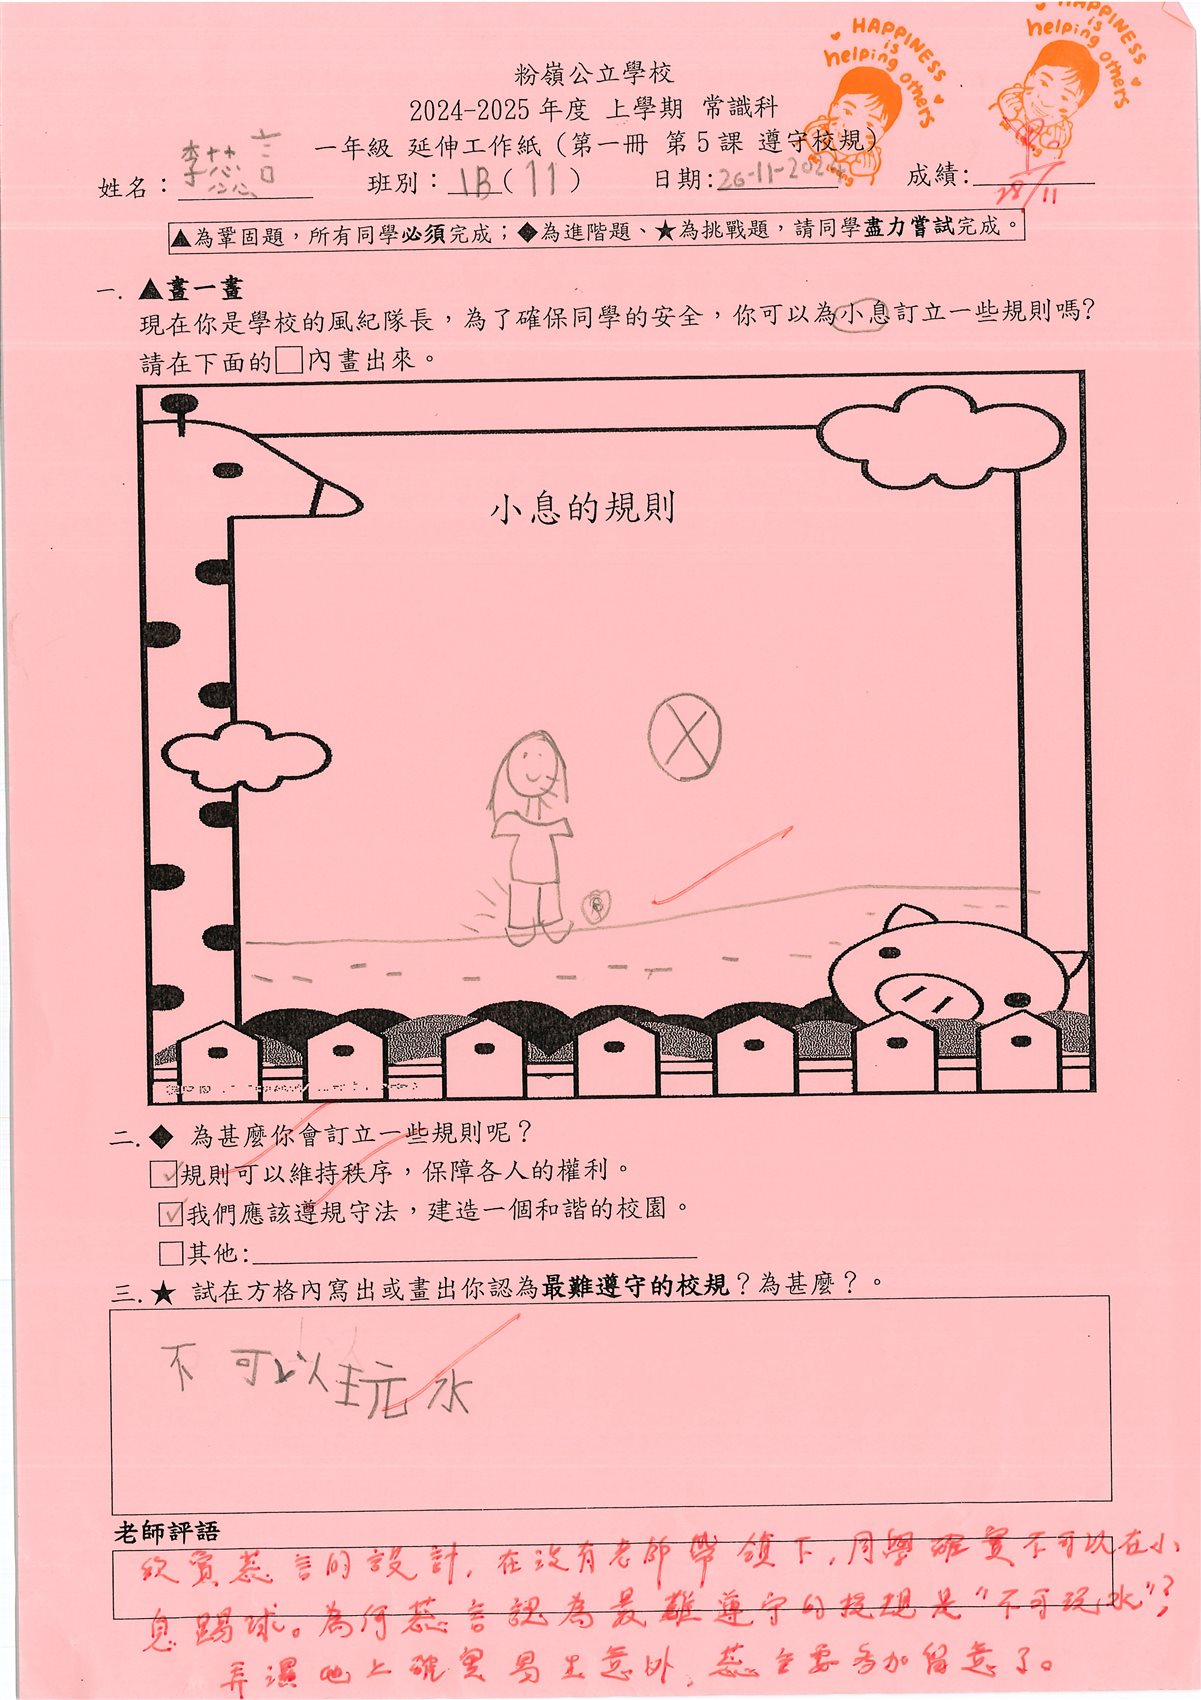 HAPPINESS
is
helping others
HAPPINESS
is
helping others
粉嶺公立學校
2024-2025 年度 上學期 常識科
一年級 延伸工作紙（第一冊 第 5 課 遵守校規）
姓名：李蕊言 班別：1B(11) 日期:26-11-2024 成績:
28/11
▲為鞏固題，所有同學必須完成；◆為進階題、★為挑戰題，請同學盡力嘗試完成。
一. ▲畫一畫
現在你是學校的風紀隊長，為了確保同學的安全，你可以為小息訂立一些規則嗎?
請在下面的□內畫出來。
小息的規則
二. ◆ 為甚麼你會訂立一些規則呢？
☑規則可以維持秩序，保障各人的權利。
☑我們應該遵規守法，建造一個和諧的校園。
□其他:
三. ★ 試在方格內寫出或畫出你認為最難遵守的校規？為甚麼？。
不可以玩水
老師評語
欣賞蕊言的設計，在沒有老師帶領下，同學確實不可以在小
息踢球。為何蕊言認為最難遵守的校規是"不可玩水"？
弄濕地上確實易生意外，蕊言要多加留意了。